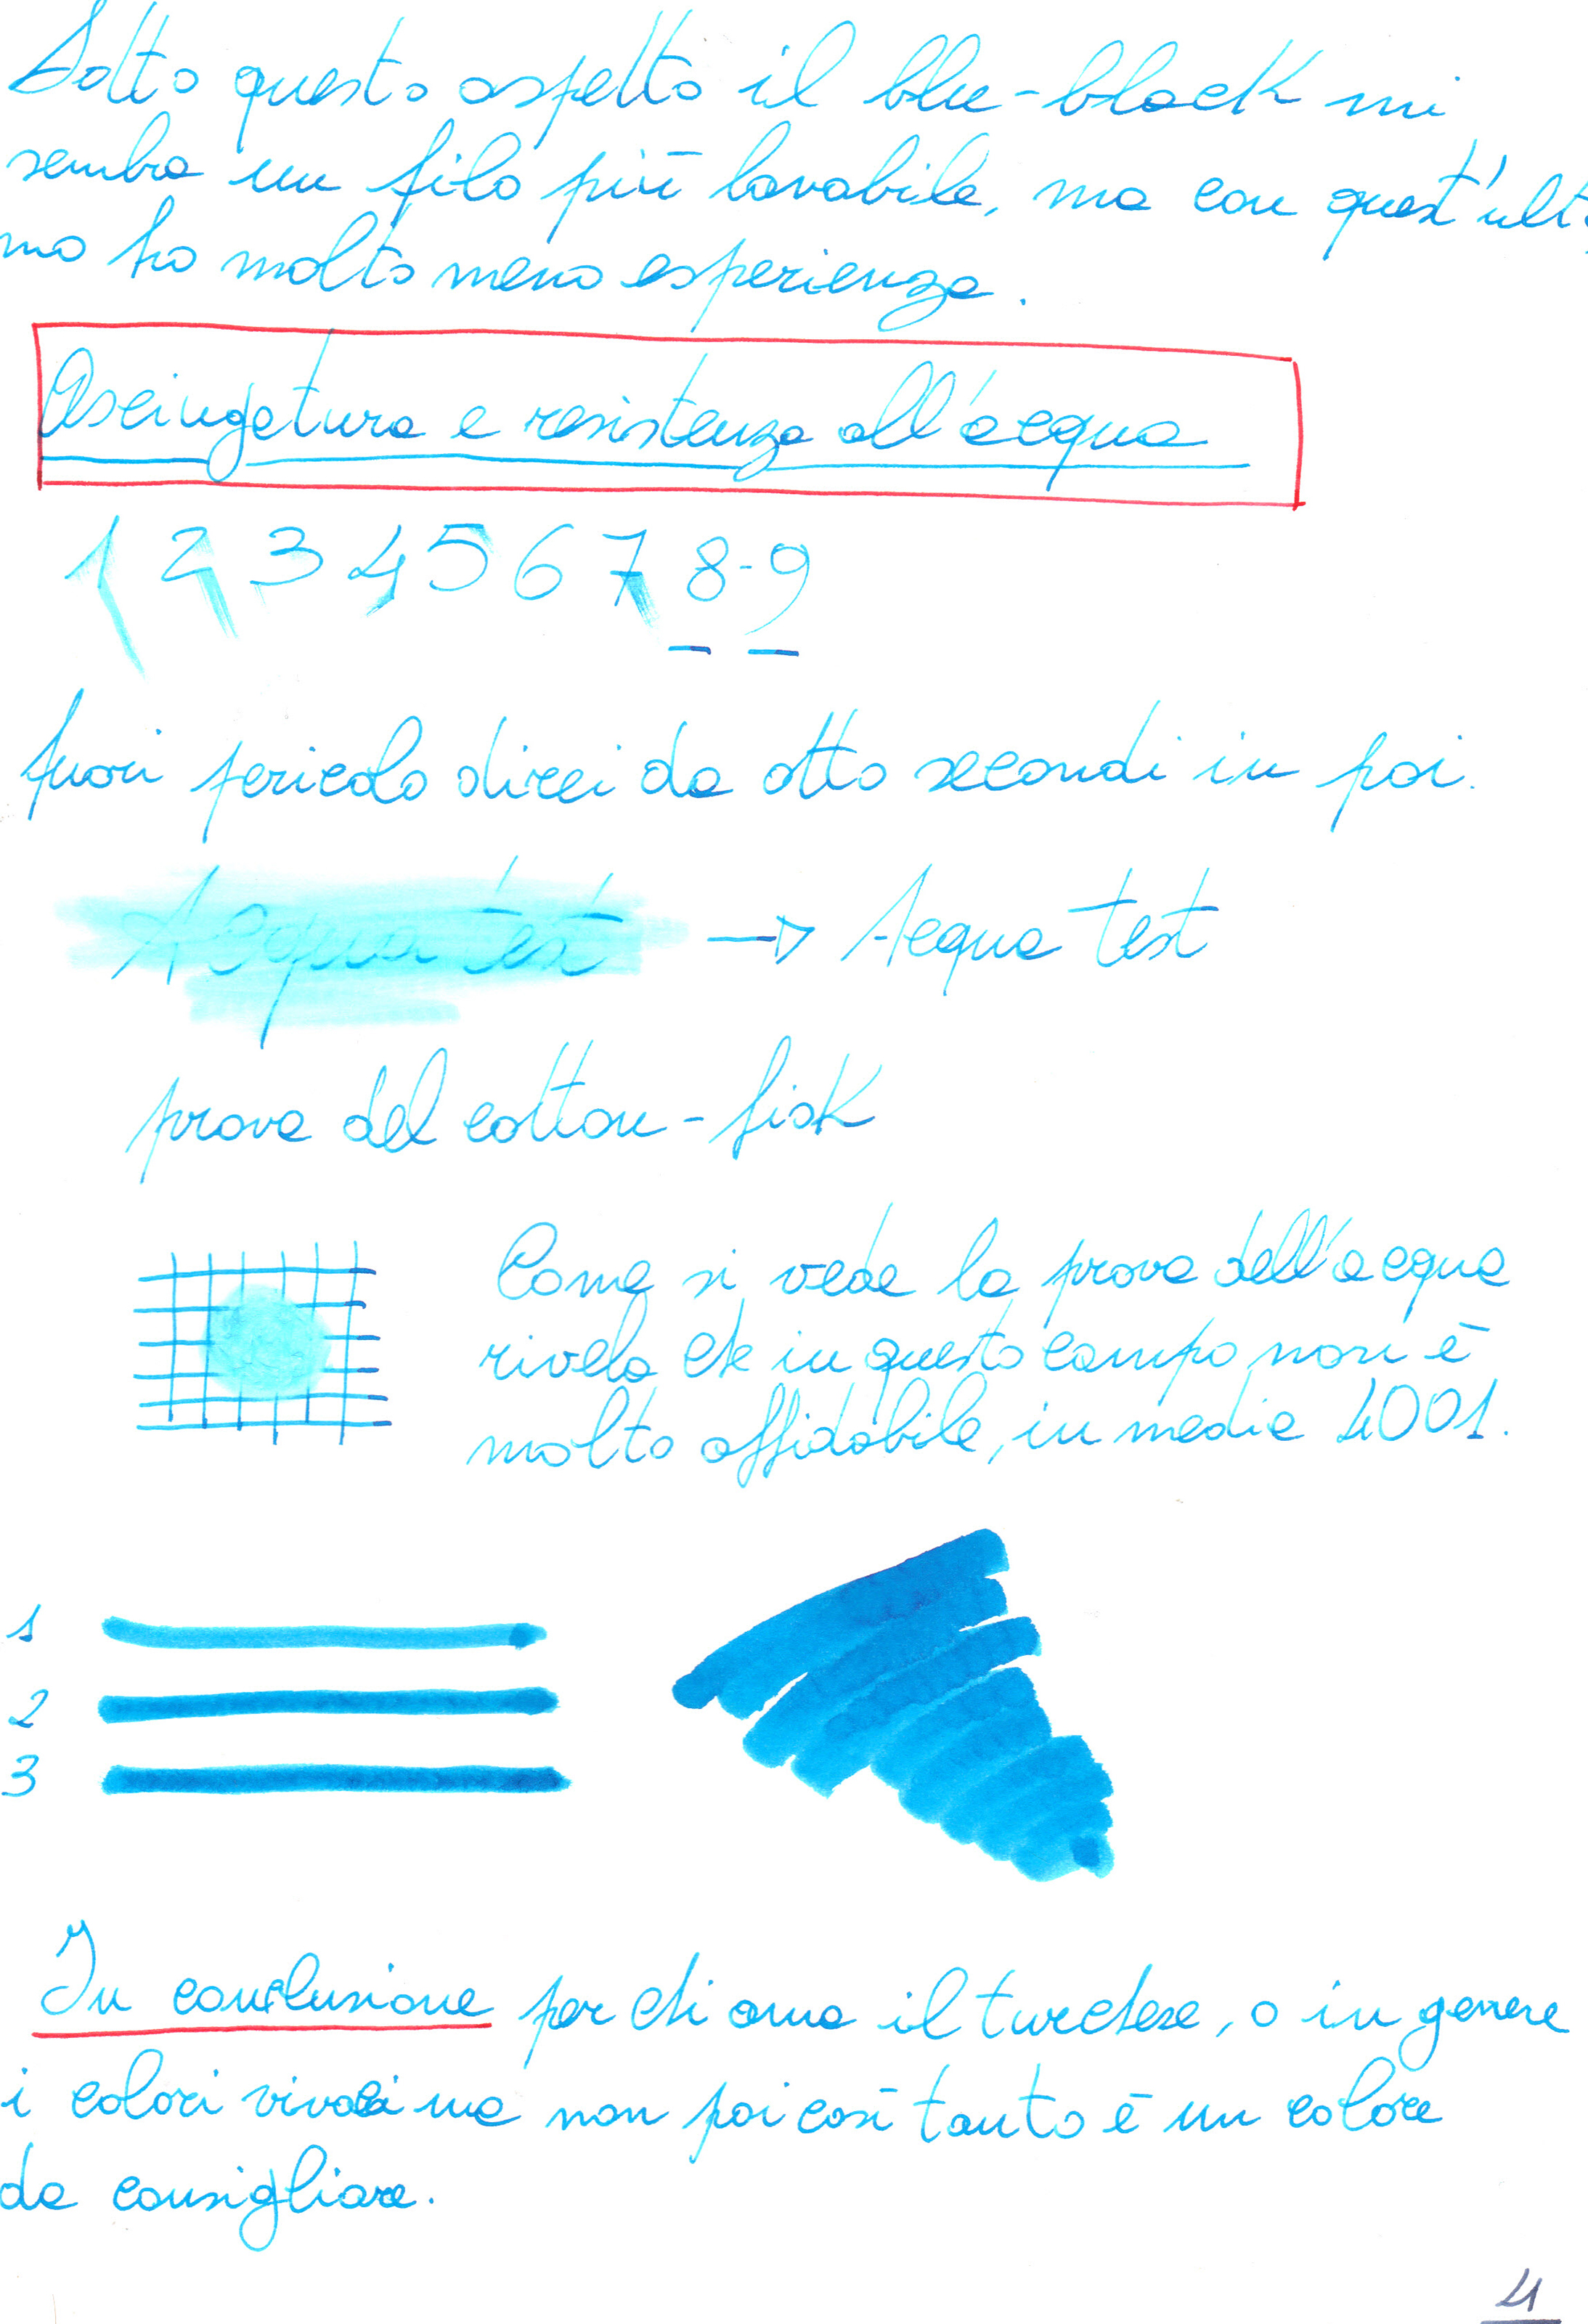 Sotto questo aspetto il blue-black mi
sembra un filo più lavabile, ma con quest'ulti
mo ho molto meno esperienza.
Asciugatura e resistenza all'acqua
1 2 3 4 5 6 7 8-9
fuori pericolo direi da otto secondi in poi.
Acqua test → Acqua test
prova del cotton-fiok
Come si vede la prova dell'acqua
rivela che in questo campo non è
molto affidabile, in media 4001.
1
2
3
In conclusione per chi ama il turchese, o in genere
i colori vivaci ma non poi così tanto è un colore
da consigliare.
4